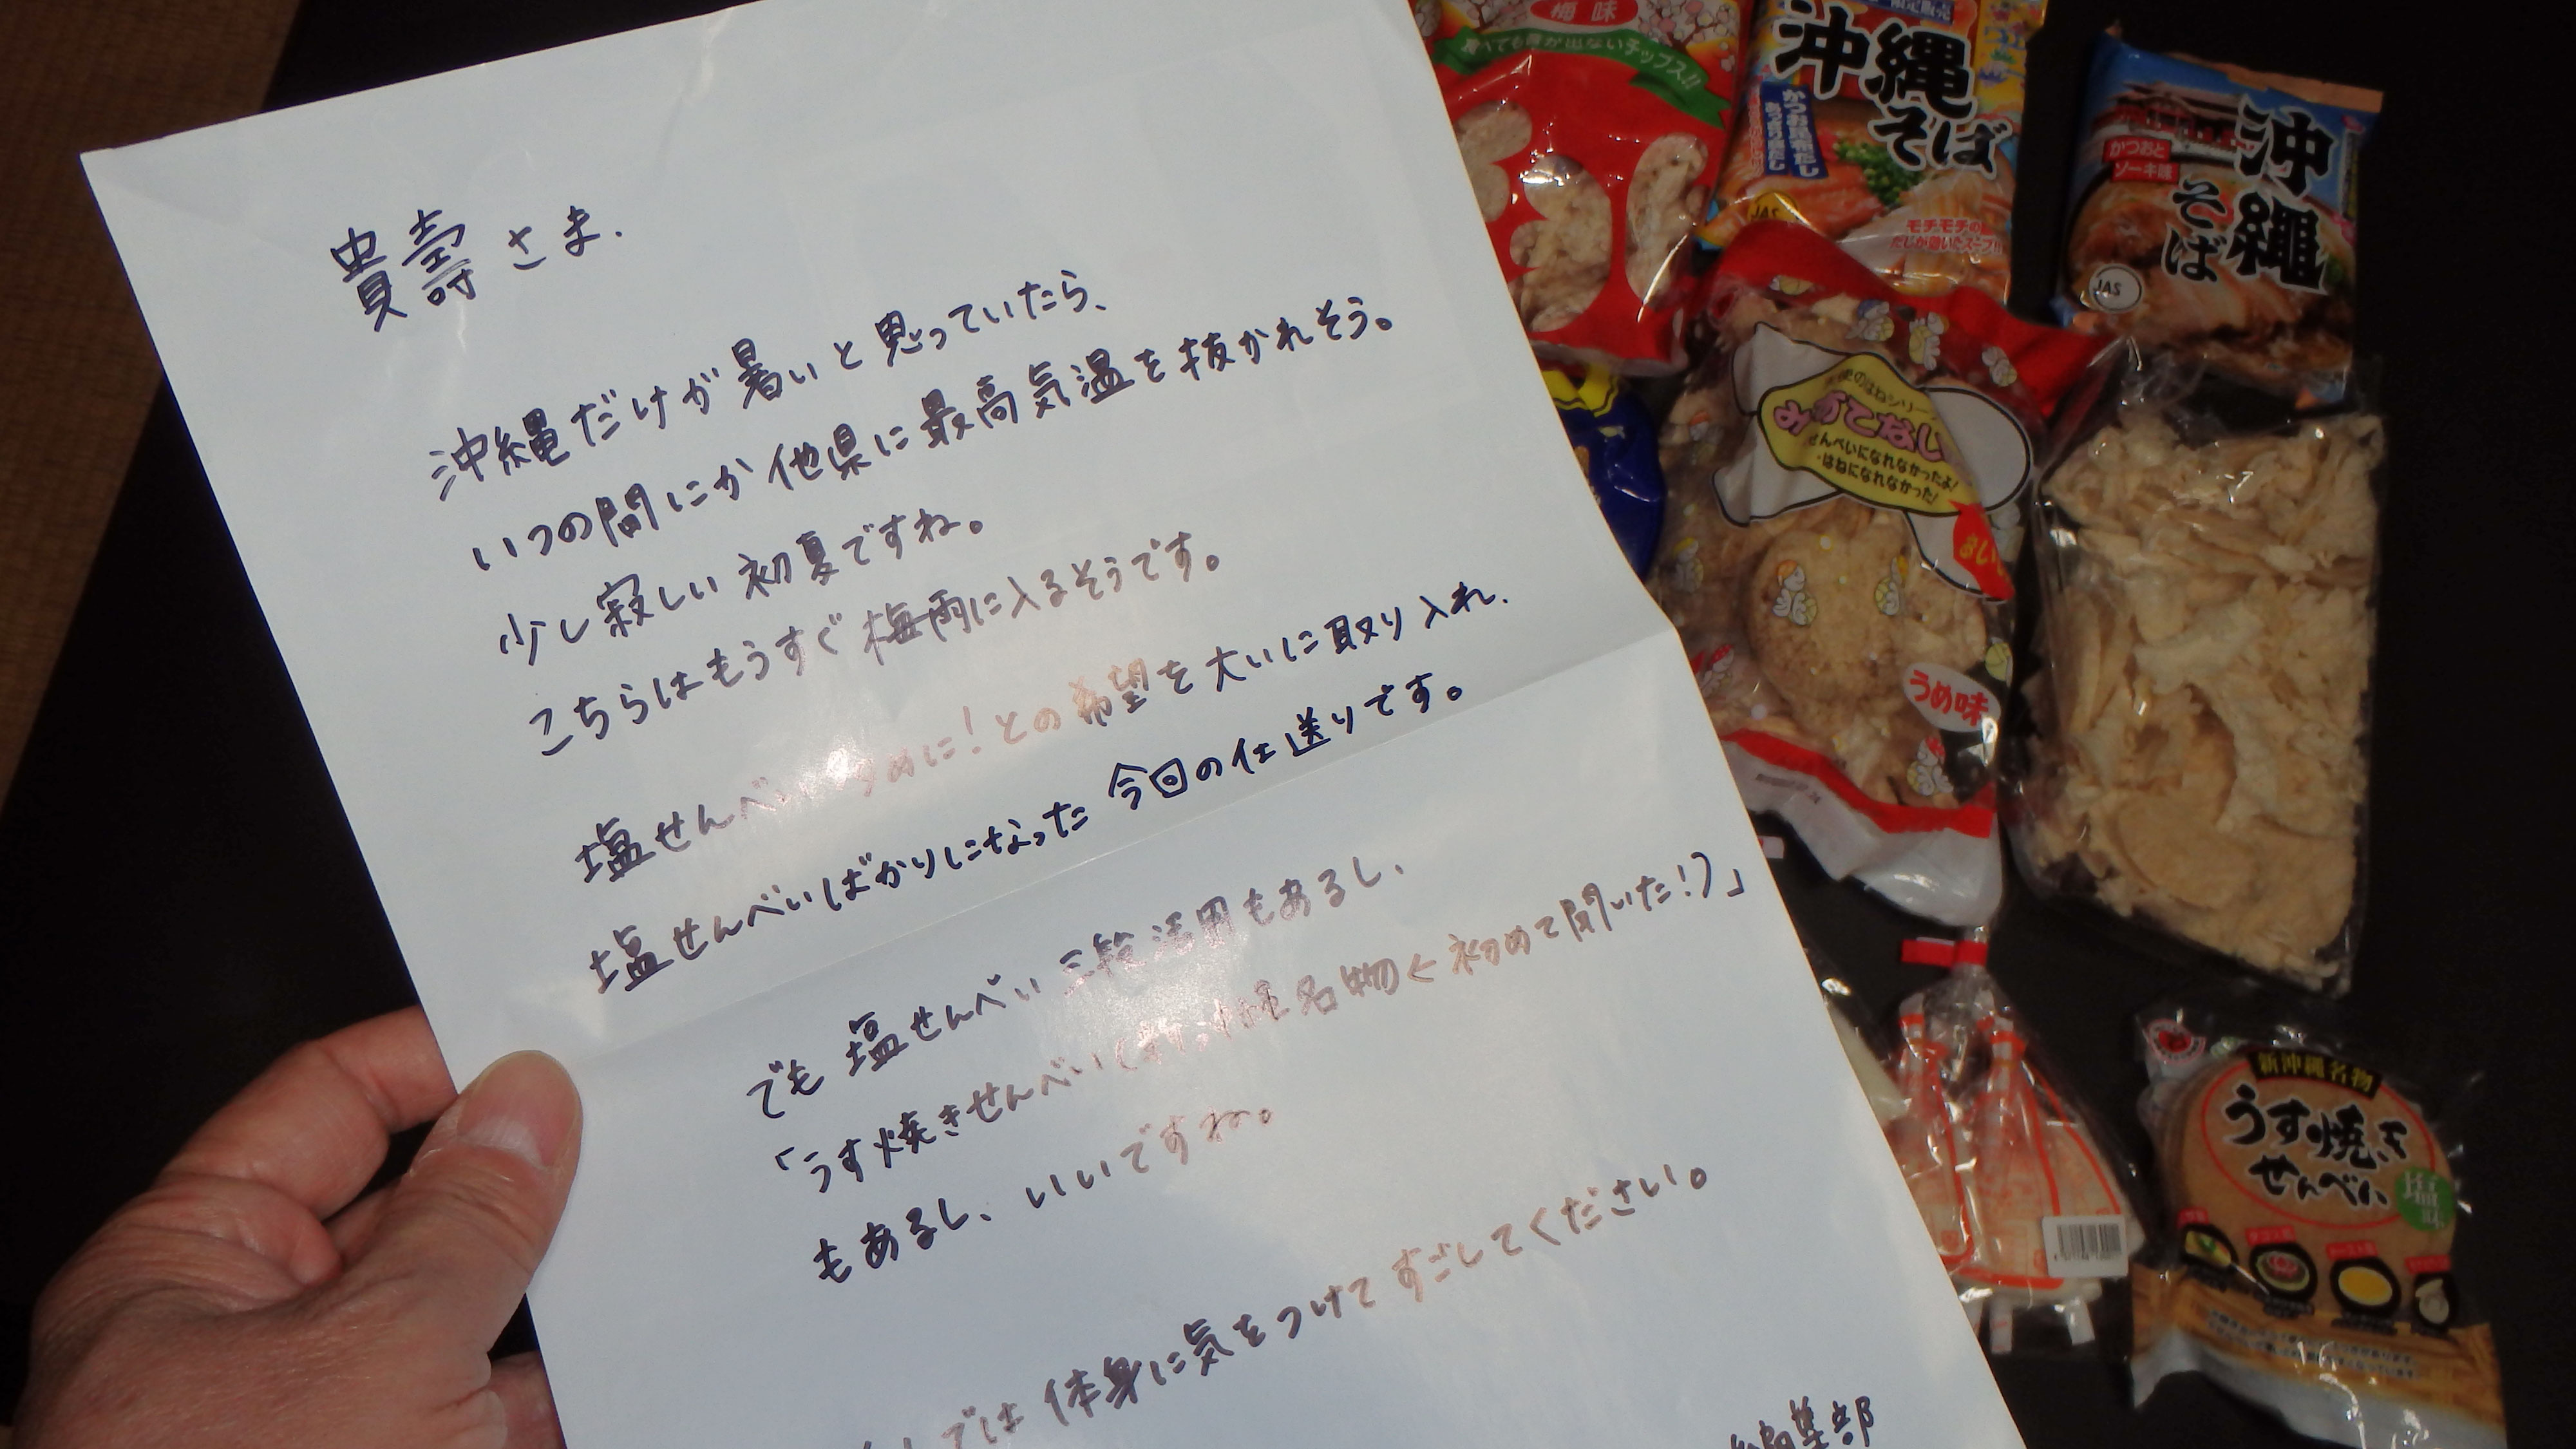 貴壽さま.
沖縄だけが暑いと思っていたら、
いつの間にか他県に最高気温を抜かれそう。
少し寂しい初夏ですね。
こちらはもうすぐ梅雨に入るそうです。
塩せんべい多めに!との希望を大いに取り入れ、
塩せんべいばかりになった今回の仕送りです。
でも塩せんべい三段活用もあるし、
「うす焼きせんべい(新沖縄名物←初めて聞いた!)」
もあるし、いいですね。
では体身に気をつけてすごしてください。
編集部
梅味
食べても音が出ないチップス!!
沖縄
そば
JAS
モチモチの麺
だしが効いたスープ!!
沖縄
そば
かつおと
ソーキ味
JAS
天使のはねシリーズ
みみでなし
せんべいになれなかったよ!
はねになれなかった!
うめ味
新沖縄名物
うす焼き
せんべい
塩味